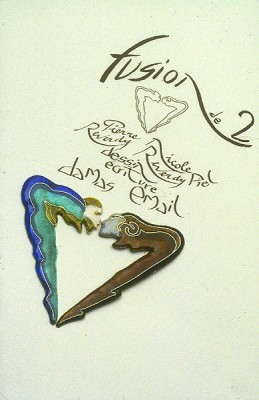 fusion
de 2
Pierre Nicole
Reverdy Reverdy Piel
dessin
écriture
damas émail